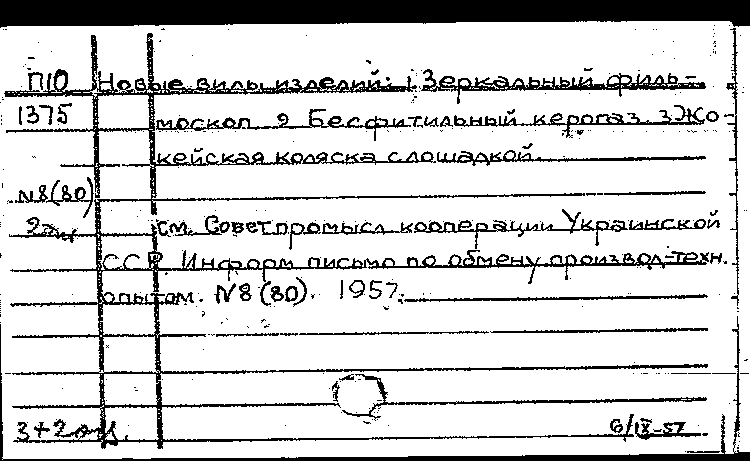 П10 Новые виды изделий: 1. Зеркальный филь-
1375 москоп 2 Бесфитильный керогаз. 3 Жо-
кейская коляска с лошадкой.
N8(80)
2 см. Совет промысл кооперации Украинской
ССР Информ письмо по обмену производ-техн.
опытом. N8 (80). 1957.
3+2 6/IX-57